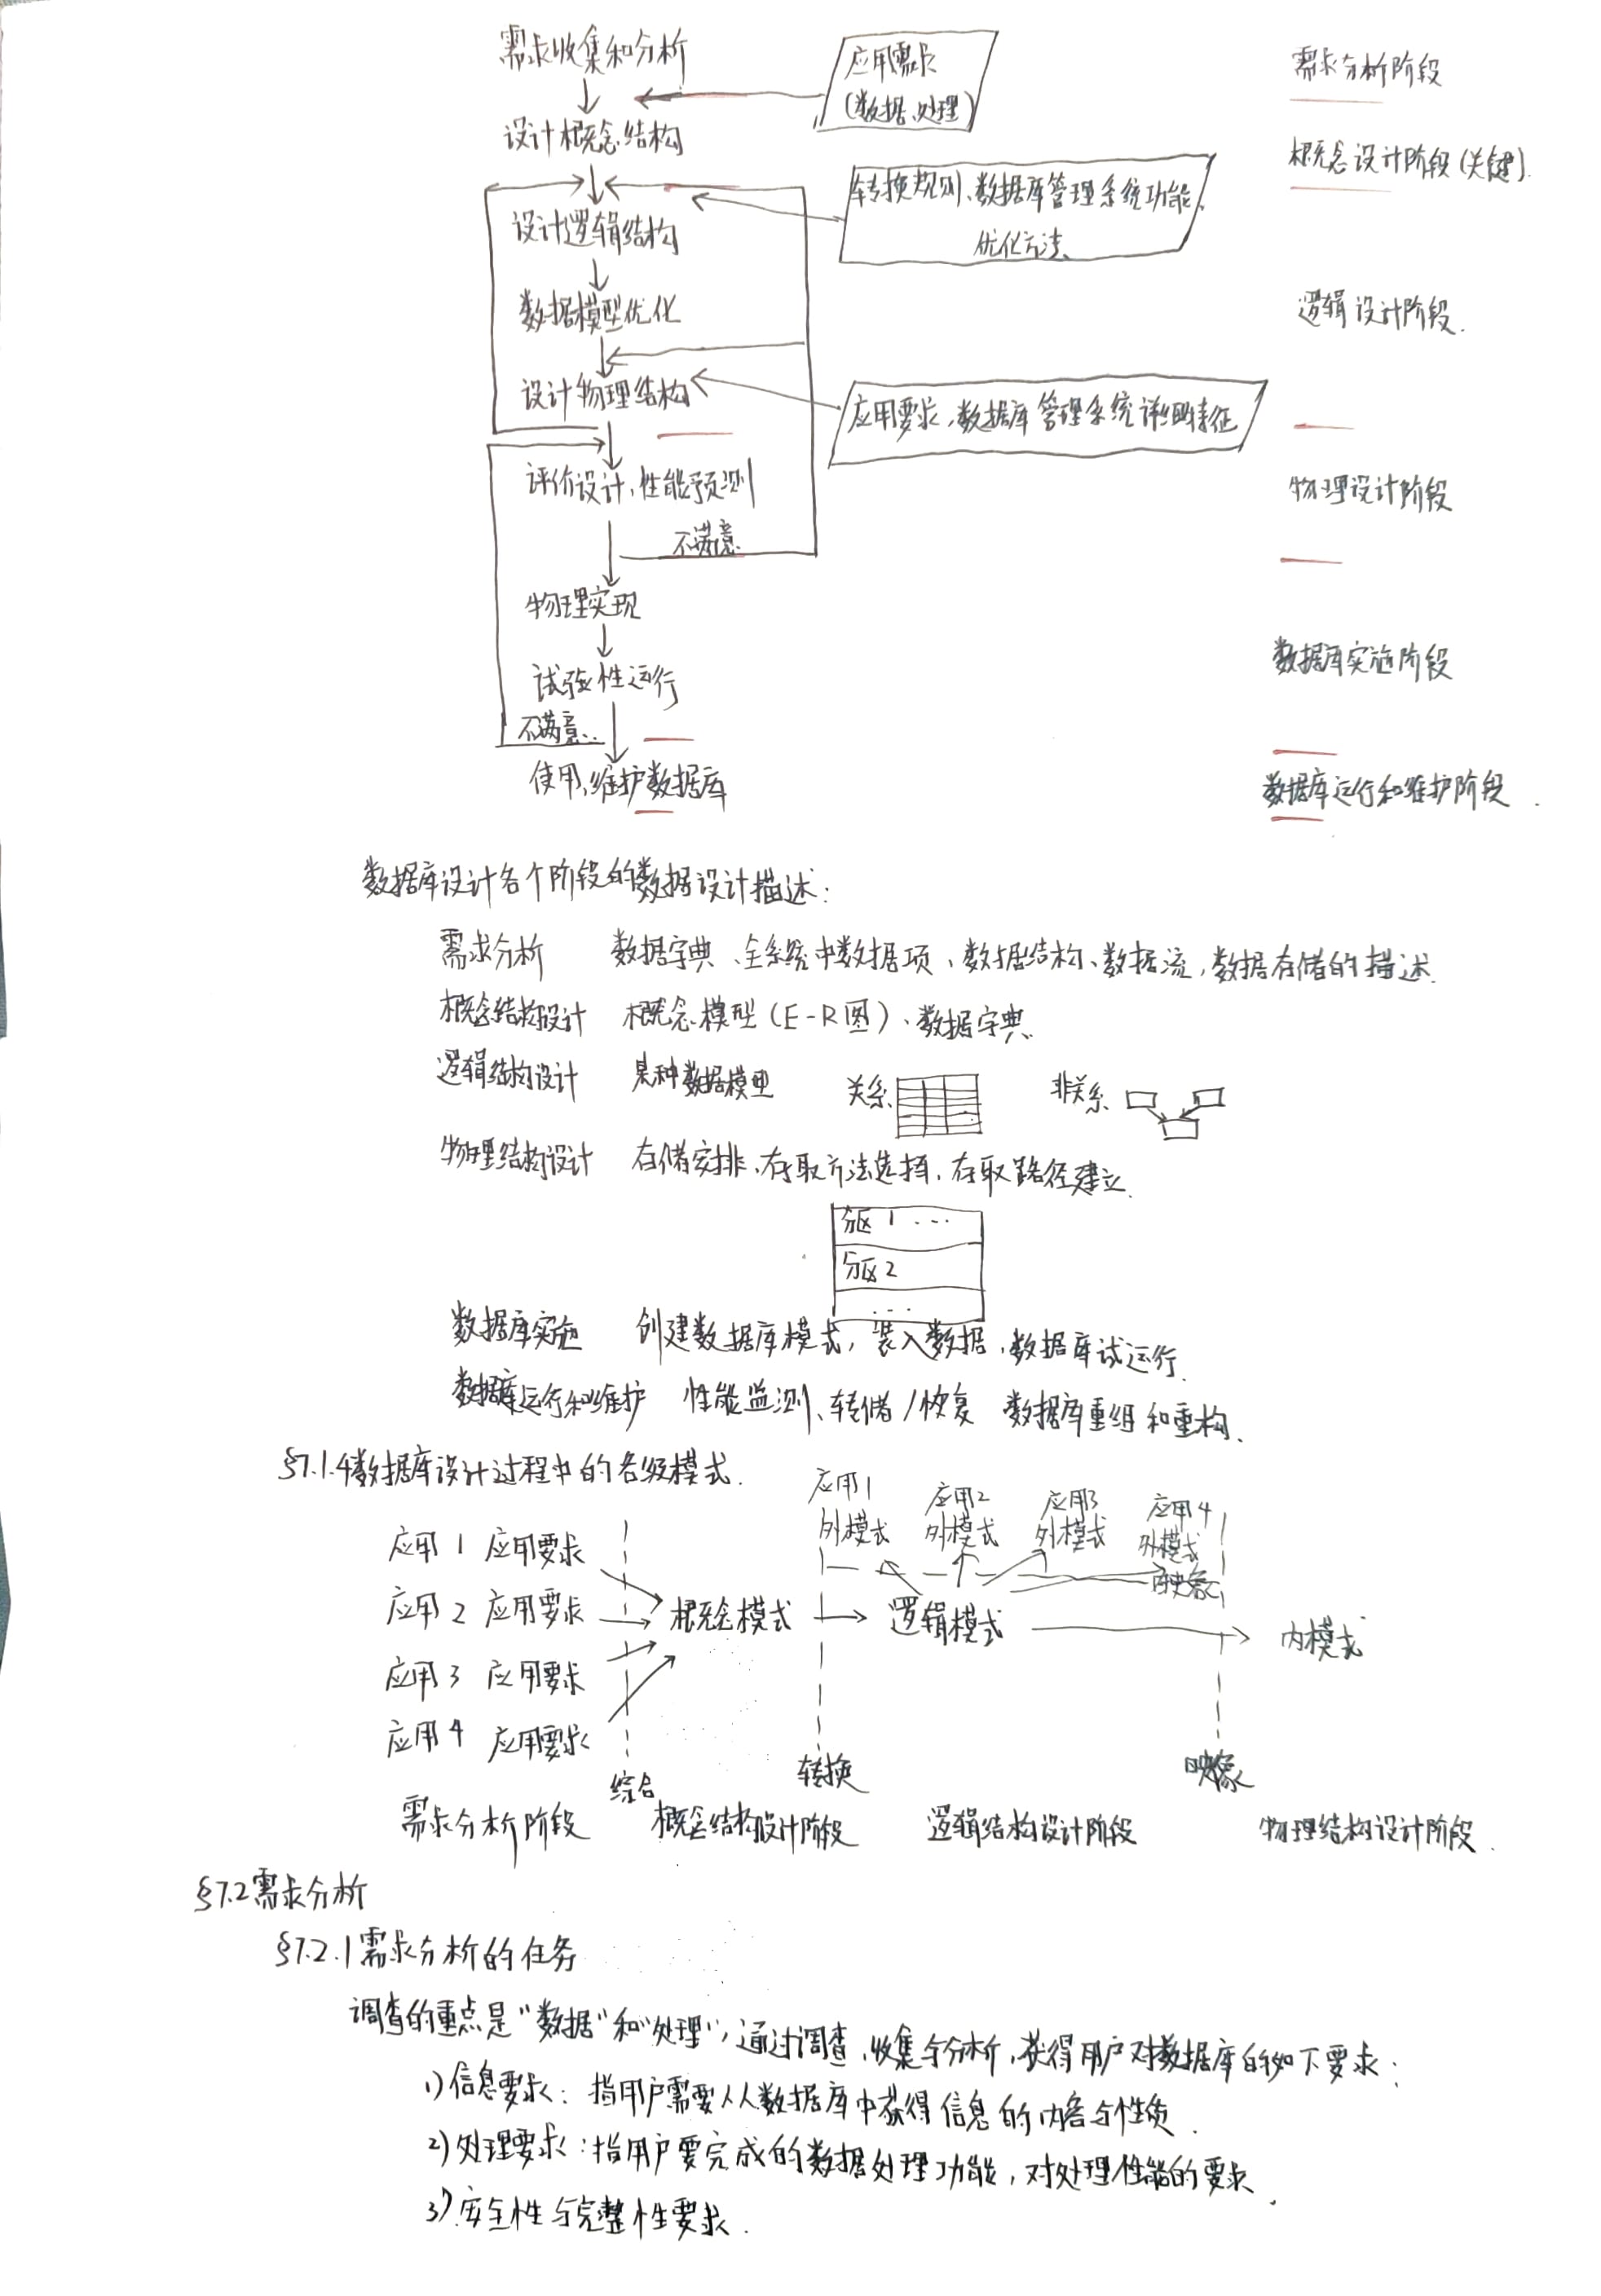 需求收集和分析
应用需求
(数据、处理)
需求分析阶段
设计概念结构
概念设计阶段(关键).
转换规则、数据库管理系统功能、
优化方法、
设计逻辑结构
数据模型优化
逻辑设计阶段.
设计物理结构
应用要求,数据库管理系统详细特征
评价设计,性能预测
物理设计阶段
不满意.
物理实现
数据库实施阶段
试验性运行
不满意..
使用,维护数据库
数据库运行和维护阶段.
数据库设计各个阶段的数据设计描述:
需求分析 数据字典、全系统中数据项、数据结构、数据流,数据存储的描述.
概念结构设计 概念模型(E-R图)、数据字典.
逻辑结构设计 某种数据模型 关系 非关系
物理结构设计 存储安排、存取方法选择、存取路径建立.
分区1...
分区2
...
数据库实施 创建数据库模式,装入数据,数据库试运行.
数据库运行和维护 性能监测、转储/恢复 数据库重组和重构.
§7.1.4数据库设计过程中的各级模式.
应用1 应用2 应用3 应用4
外模式 外模式 外模式 外模式
应用1 应用要求
映象
应用2 应用要求 概念模式 逻辑模式 内模式
应用3 应用要求
应用4 应用要求
综合 转换 映象
需求分析阶段 概念结构设计阶段 逻辑结构设计阶段 物理结构设计阶段.
§7.2需求分析
§7.2.1需求分析的任务
调查的重点是“数据”和“处理”,通过调查,收集与分析,获得用户对数据库的如下要求:
1)信息要求:指用户需要从数据库中获得信息的内容与性质.
2)处理要求:指用户要完成的数据处理功能,对处理性能的要求.
3)安全性与完整性要求.